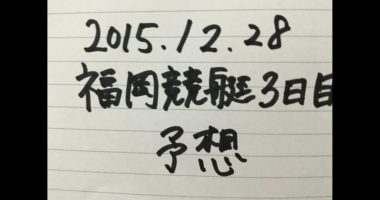 2015.12.28
福岡競艇3日目
予想